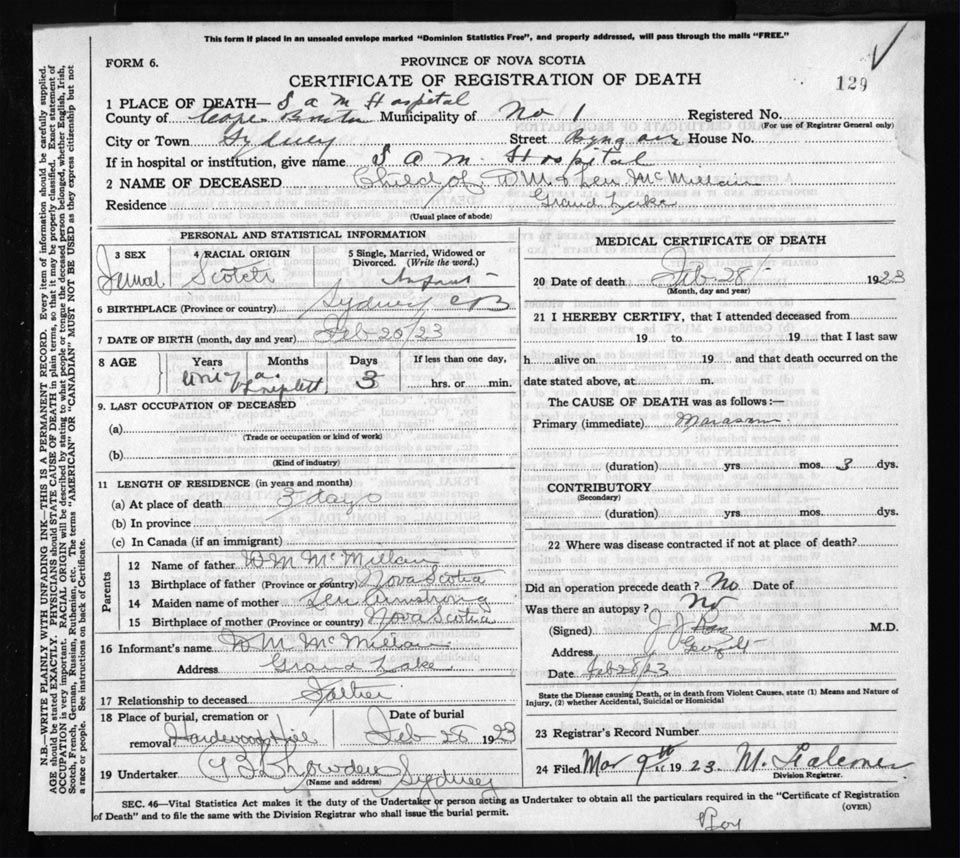 This form if placed in an unsealed envelope marked "Dominion Statistics Free", and properly addressed, will pass through the mails "FREE."
FORM 6.
PROVINCE OF NOVA SCOTIA
CERTIFICATE OF REGISTRATION OF DEATH
129
1 PLACE OF DEATH— S a M Hospital
County of Cape Breton Municipality of No 1 Registered No.
(For use of Registrar General only)
City or Town Sydney Street House No.
If in hospital or institution, give name S a M. Hospital
2 NAME OF DECEASED Child of D M & Leu McMillan
Residence Grand Lake
(Usual place of abode)
PERSONAL AND STATISTICAL INFORMATION
3 SEX 4 RACIAL ORIGIN Scotch 5 Single, Married, Widowed or Divorced. (Write the word.) Infant
6 BIRTHPLACE (Province or country) Sydney CB
7 DATE OF BIRTH (month, day and year) Feb 20/23
8 AGE Years Months Days If less than one day,
one of a triplett 3 hrs. or min.
9. LAST OCCUPATION OF DECEASED
(a)
(Trade or occupation or kind of work)
(b)
(Kind of industry)
11 LENGTH OF RESIDENCE (in years and months)
(a) At place of death 3 days
(b) In province
(c) In Canada (if an immigrant)
Parents
12 Name of father D M McMillan
13 Birthplace of father (Province or country) Nova Scotia
14 Maiden name of mother Leu Armstrong
15 Birthplace of mother (Province or country) Nova Scotia
16 Informant's name D M McMillan
Address Grand Lake
17 Relationship to deceased Father
18 Place of burial, cremation or removal Hardwood Hill Date of burial Feb 28 1923
19 Undertaker Sydney
(Name and address)
MEDICAL CERTIFICATE OF DEATH
20 Date of death Feb 28 1923
(Month, day and year)
21 I HEREBY CERTIFY, that I attended deceased from
19 to 19 that I last saw
h alive on 19 and that death occurred on the
date stated above, at m.
The CAUSE OF DEATH was as follows:—
Primary (immediate)
(duration) yrs. mos. 3 dys.
CONTRIBUTORY
(Secondary)
(duration) yrs. mos. dys.
22 Where was disease contracted if not at place of death?
Did an operation precede death? No Date of
Was there an autopsy? No
(Signed) J J M.D.
Address
Date Feb 28/23
State the Disease causing Death, or in death from Violent Causes, state (1) Means and Nature of
Injury, (2) whether Accidental, Suicidal or Homicidal
23 Registrar's Record Number
24 Filed Mar 9th 1923. M. Falconer
Division Registrar.
SEC. 46—Vital Statistics Act makes it the duty of the Undertaker or person acting as Undertaker to obtain all the particulars required in the "Certificate of Registration
of Death" and to file the same with the Division Registrar who shall issue the burial permit.
(OVER)
N.B.—WRITE PLAINLY WITH UNFADING INK—THIS IS A PERMANENT RECORD. Every item of information should be carefully supplied.
AGE should be stated EXACTLY. PHYSICIANS should STATE CAUSE OF DEATH in plain terms, so that it may be properly classified. Exact statement of
OCCUPATION is very important. RACIAL ORIGIN will be described by stating to what people or tongue the deceased person belonged, whether English, Irish,
Scotch, French, German, Russian, Ruthenian, etc. The terms "AMERICAN" OR "CANADIAN" MUST NOT BE USED as they express citizenship but not
a race or people. See instructions on back of Certificate.